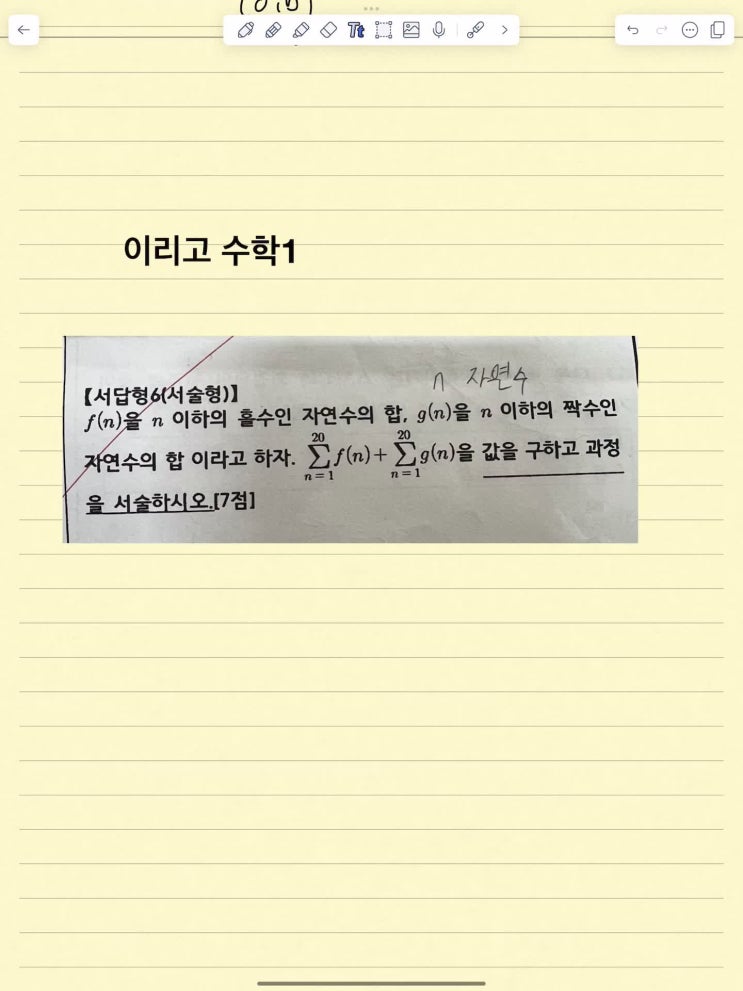 이리고 수학1
n 자연수
【서답형6(서술형)】
f(n)을 n 이하의 홀수인 자연수의 합, g(n)을 n 이하의 짝수인
자연수의 합 이라고 하자. \sum_{n=1}^{20} f(n) + \sum_{n=1}^{20} g(n)을 값을 구하고 과정
을 서술하시오.[7점]